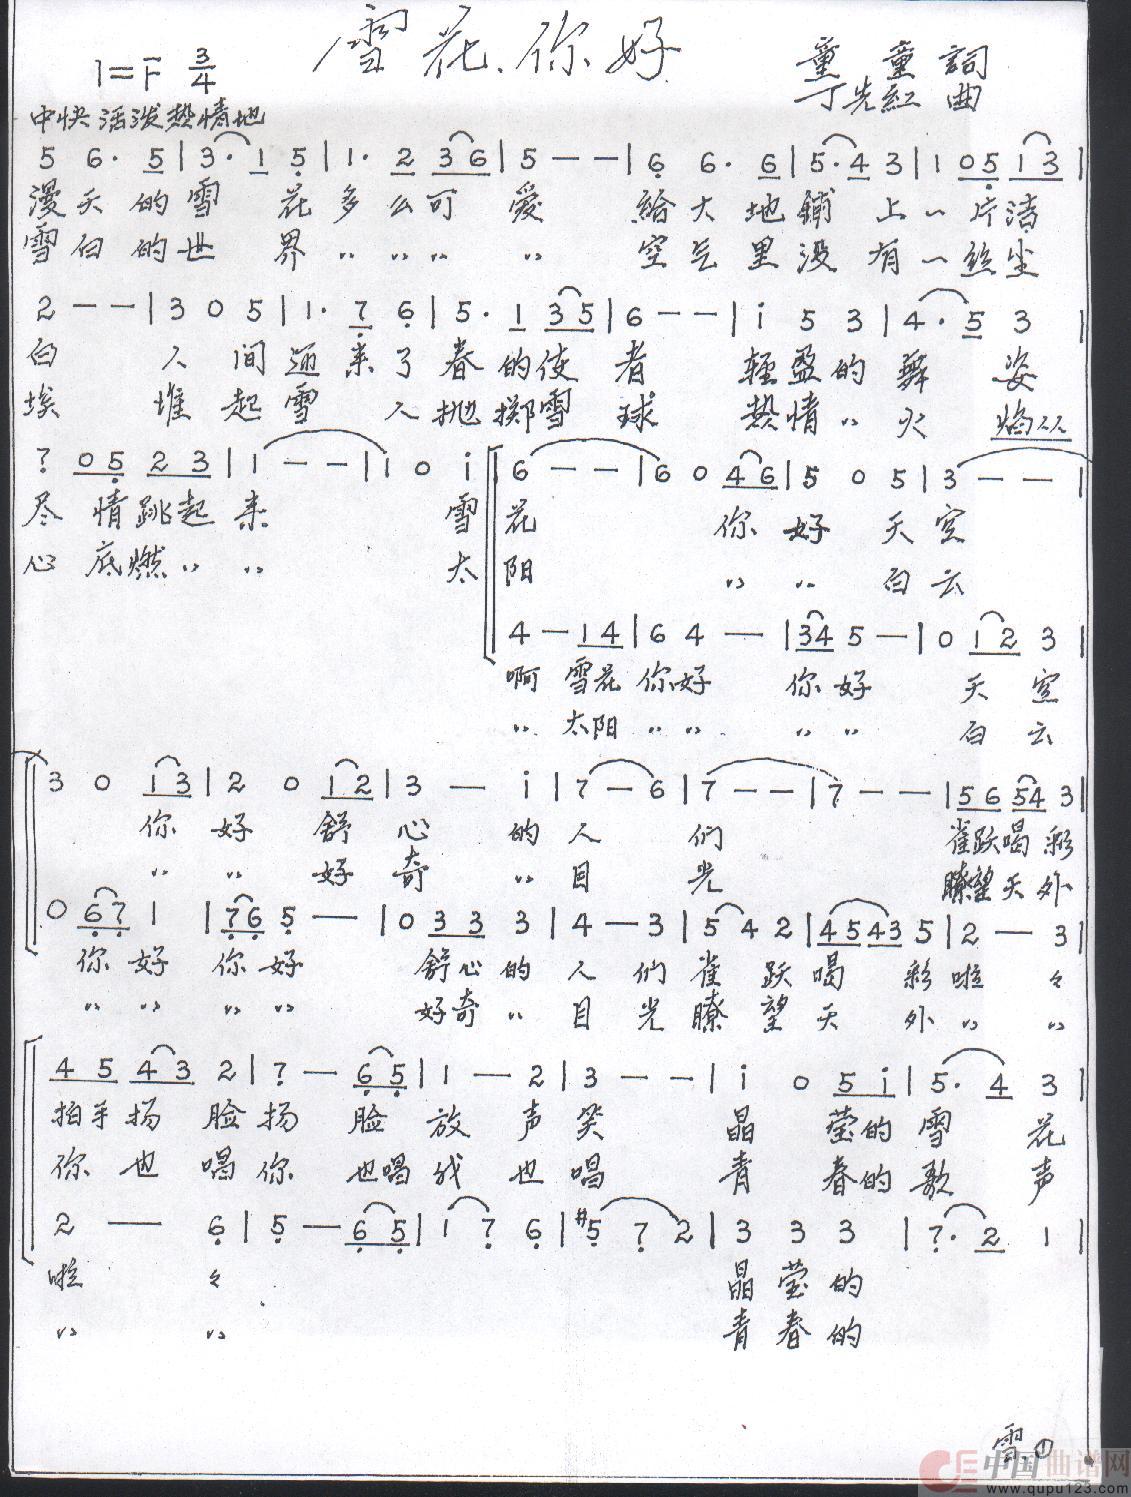 雪花、你好
1=F 3/4
童 童 詞
丁先紅 曲
中快 活泼热情地
5 6· 5 | 3· 1 5 | 1· 2 3 6 | 5 — — | 6 6· 6 | 5· 4 3 | 1 0 5 1 3 |
漫天的雪 花多么可 爱 給大地鋪上一片洁
雪白的世 界 〃 〃 〃 〃 空气里没有一丝尘
2 — — | 3 0 5 | 1· 7 6 | 5· 1 3 5 | 6 — — | i 5 3 | 4· 5 3 |
白 人间迎来了春的使者 轻盈的舞 姿
埃 堆起雪 人抛掷雪 球 热情 〃 火 焰
7 0 5 2 3 | 1 — — | 1 0 i | 6 — — | 6 0 4 6 | 5 0 5 | 3 — — |
尽 情跳起来 雪花 你 好 天空
心 底燃 〃 〃 太阳 〃 〃 白云
4 — 1 4 | 6 4 — | 3 4 5 — | 0 1 2 3 |
啊 雪花你好 你好 天空
〃 太阳 〃 〃 〃 〃 白云
3 0 1 3 | 2 0 1 2 | 3 — i | 7 — 6 | 7 — — | 7 — — | 5 6 5 4 3 |
你 好 舒 心 的人 们 雀跃喝彩
〃 〃 好 奇 〃 目 光 瞭望天外
0 6 7 1 | 7 6 5 — | 0 3 3 3 | 4 — 3 | 5 4 2 | 4 5 4 3 5 | 2 — 3 |
你好 你好 舒心的人们雀 跃喝 彩啦 々
〃 〃 〃 〃 好奇 〃 目光瞭 望天 外 〃 〃
4 5 4 3 2 | 7 — 6 5 | 1 — 2 | 3 — — | i 0 5 i | 5· 4 3 |
拍手扬 脸扬 脸 放 声笑 晶 莹的雪 花
你 也 唱你 也唱我 也唱 青 春的歌 声
2 — 6 | 5 — 6 5 | 1 7 6 | #5 7 2 | 3 3 3 | 7· 2 1 |
啦 々 晶莹的
〃 〃 青春的
雪.①
中国曲谱网
www.qupu123.com